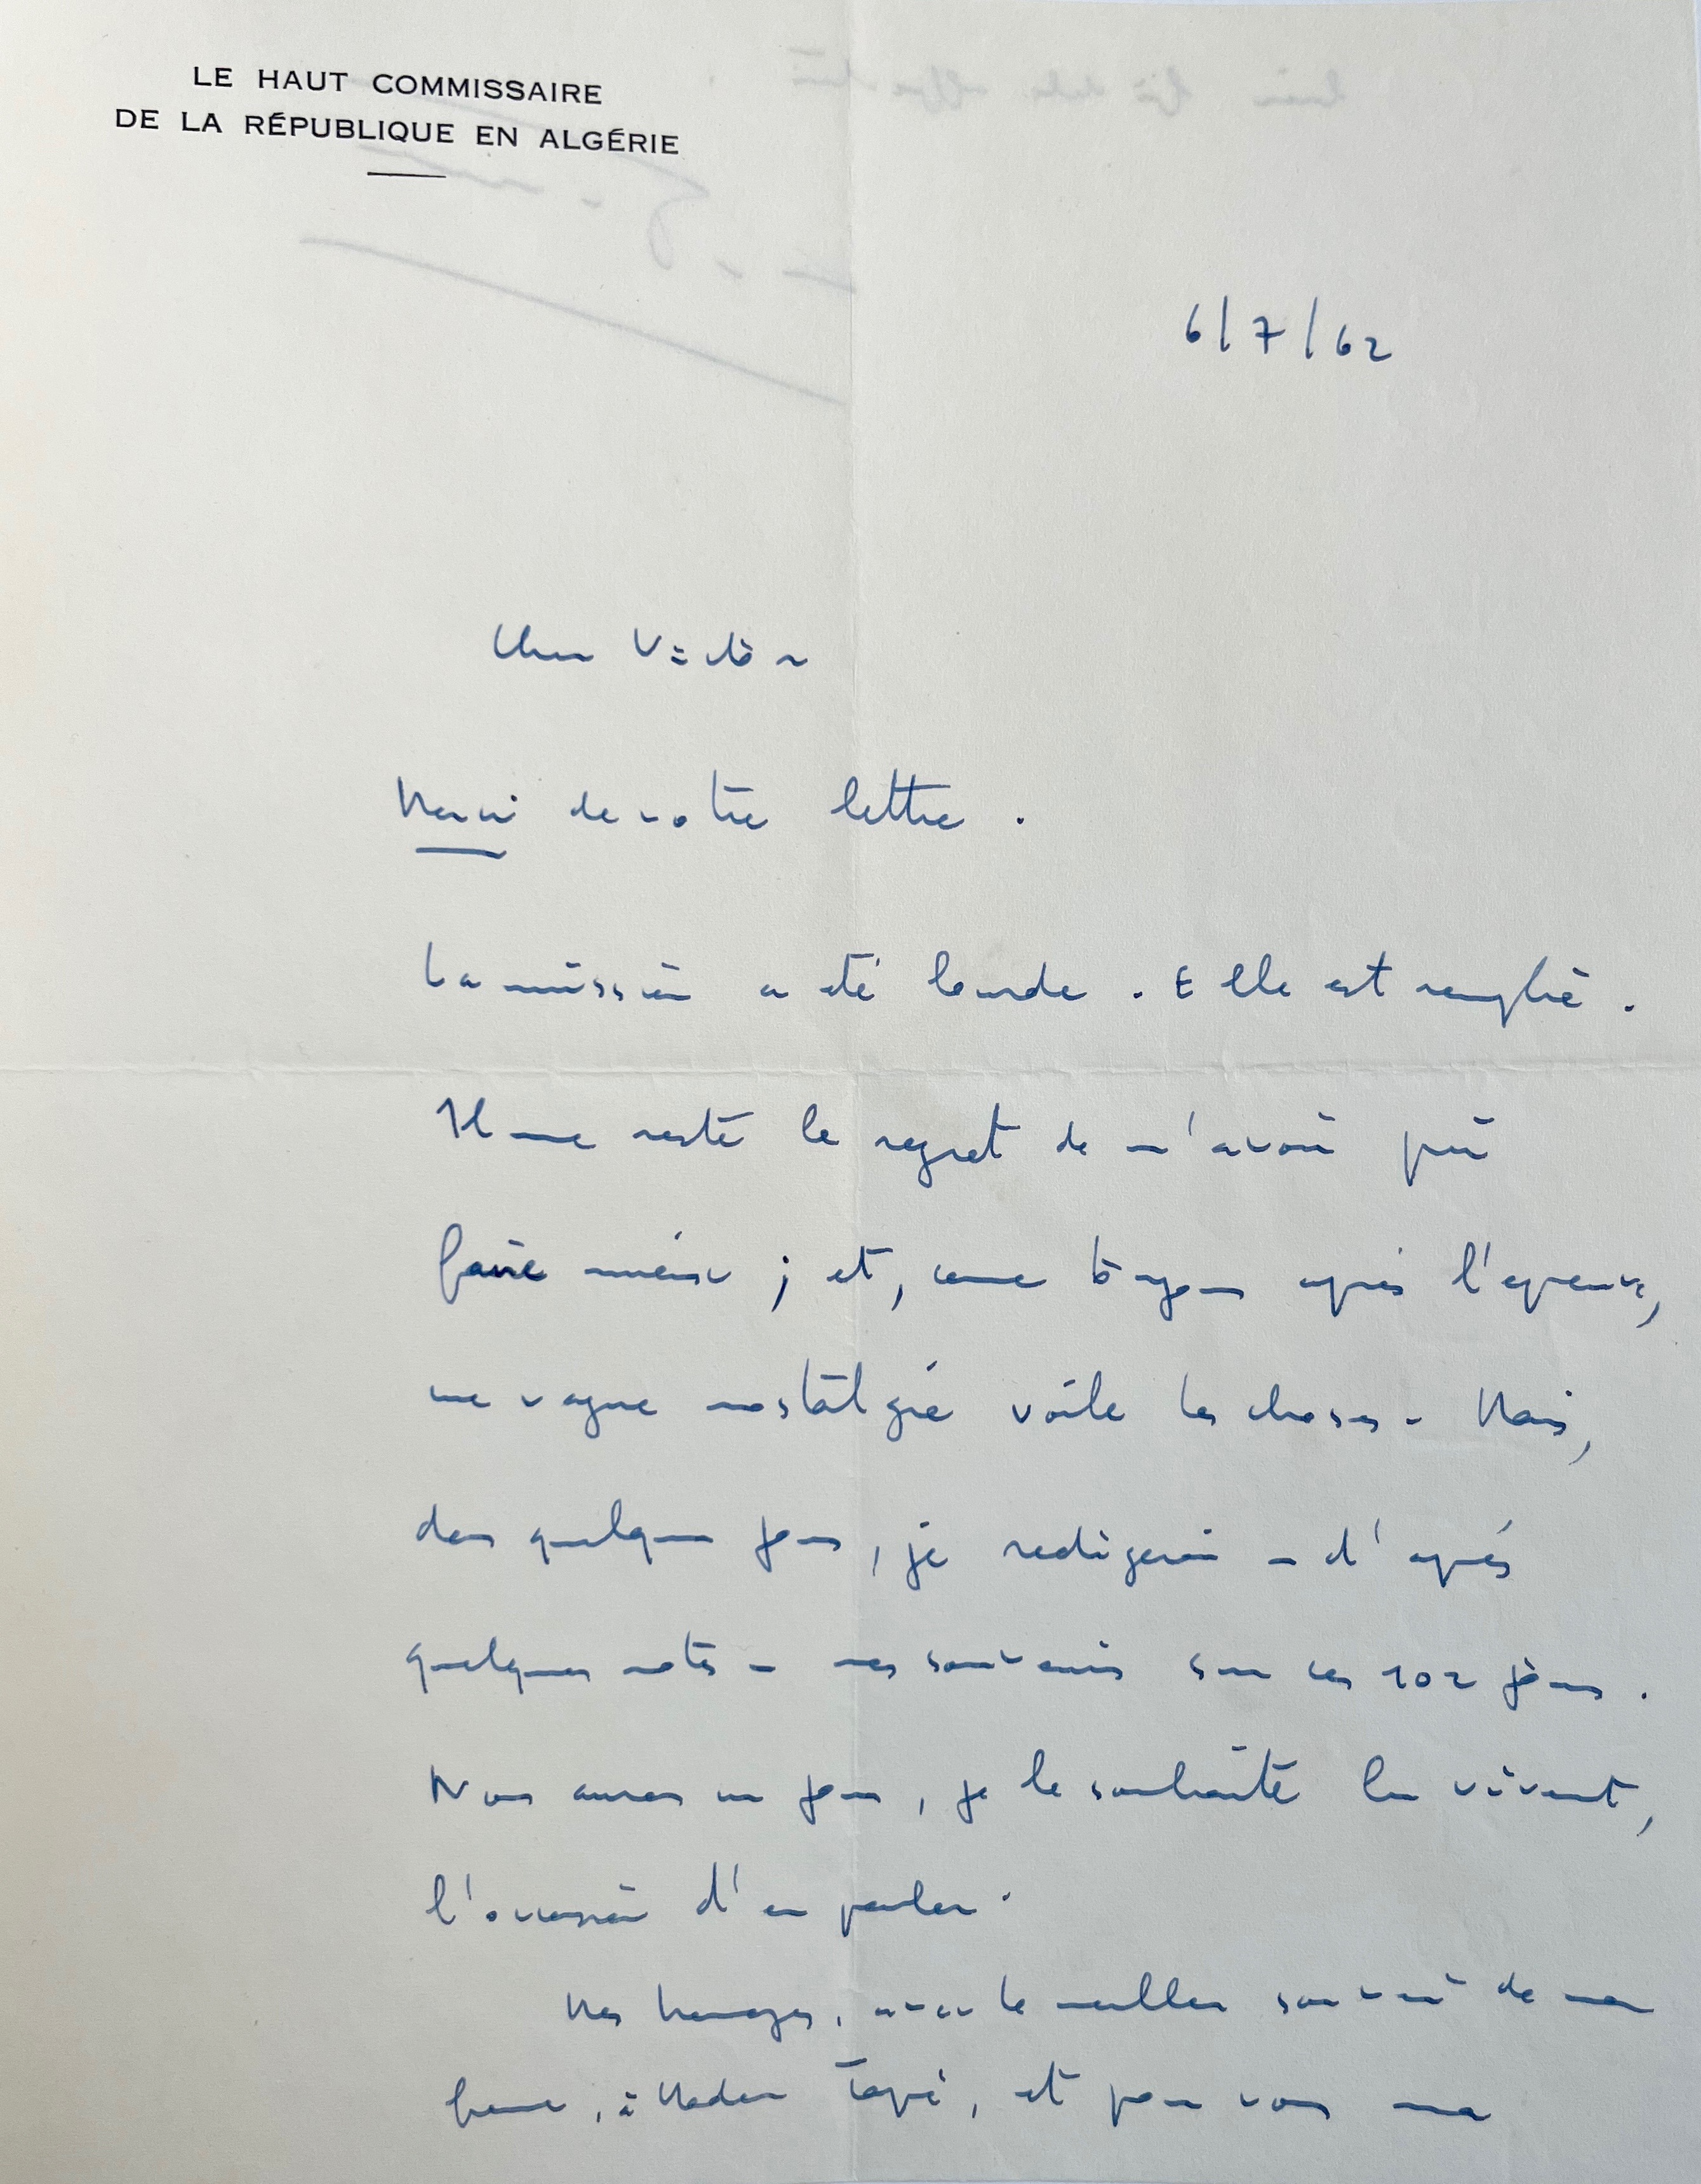 LE HAUT COMMISSAIRE
DE LA RÉPUBLIQUE EN ALGÉRIE
6/7/62
Cher Victor
Merci de votre lettre.
La mission a été lourde. Elle est remplie.
Il me reste le regret de n'avoir pu
faire mieux ; et, comme toujours après l'épreuve,
une vague nostalgie voile les choses - Mais,
dans quelques jours, je rédigerai - d'après
quelques notes - mes souvenirs sur ces 102 jours.
Nous aurons un jour, je le souhaite bien vivement,
l'occasion d'en parler.
Mes hommages, avec le meilleur souvenir de ma
femme, à Madame Tapié, et pour vous ma